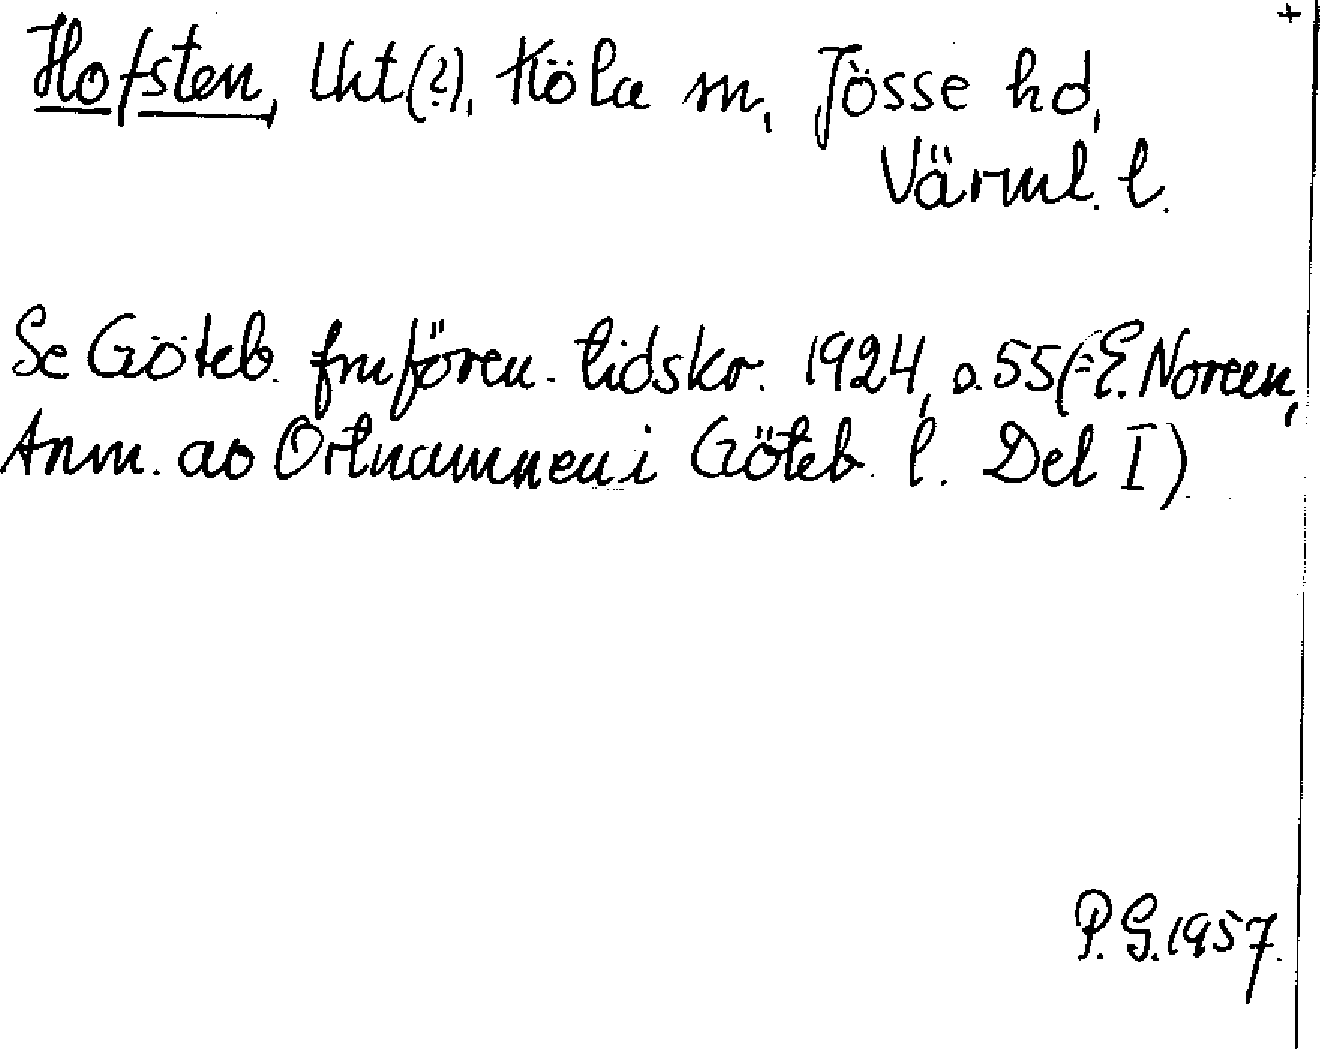 +
Hofsten, lht(?), Köla sn, Jösse hd,
Värml. l.
Se Göteb. fmfören. tidskr. 1924, s. 55 (=E. Noreen,
Anm. av Ortnamnen i Göteb. l. Del I)
P.G. 1957.